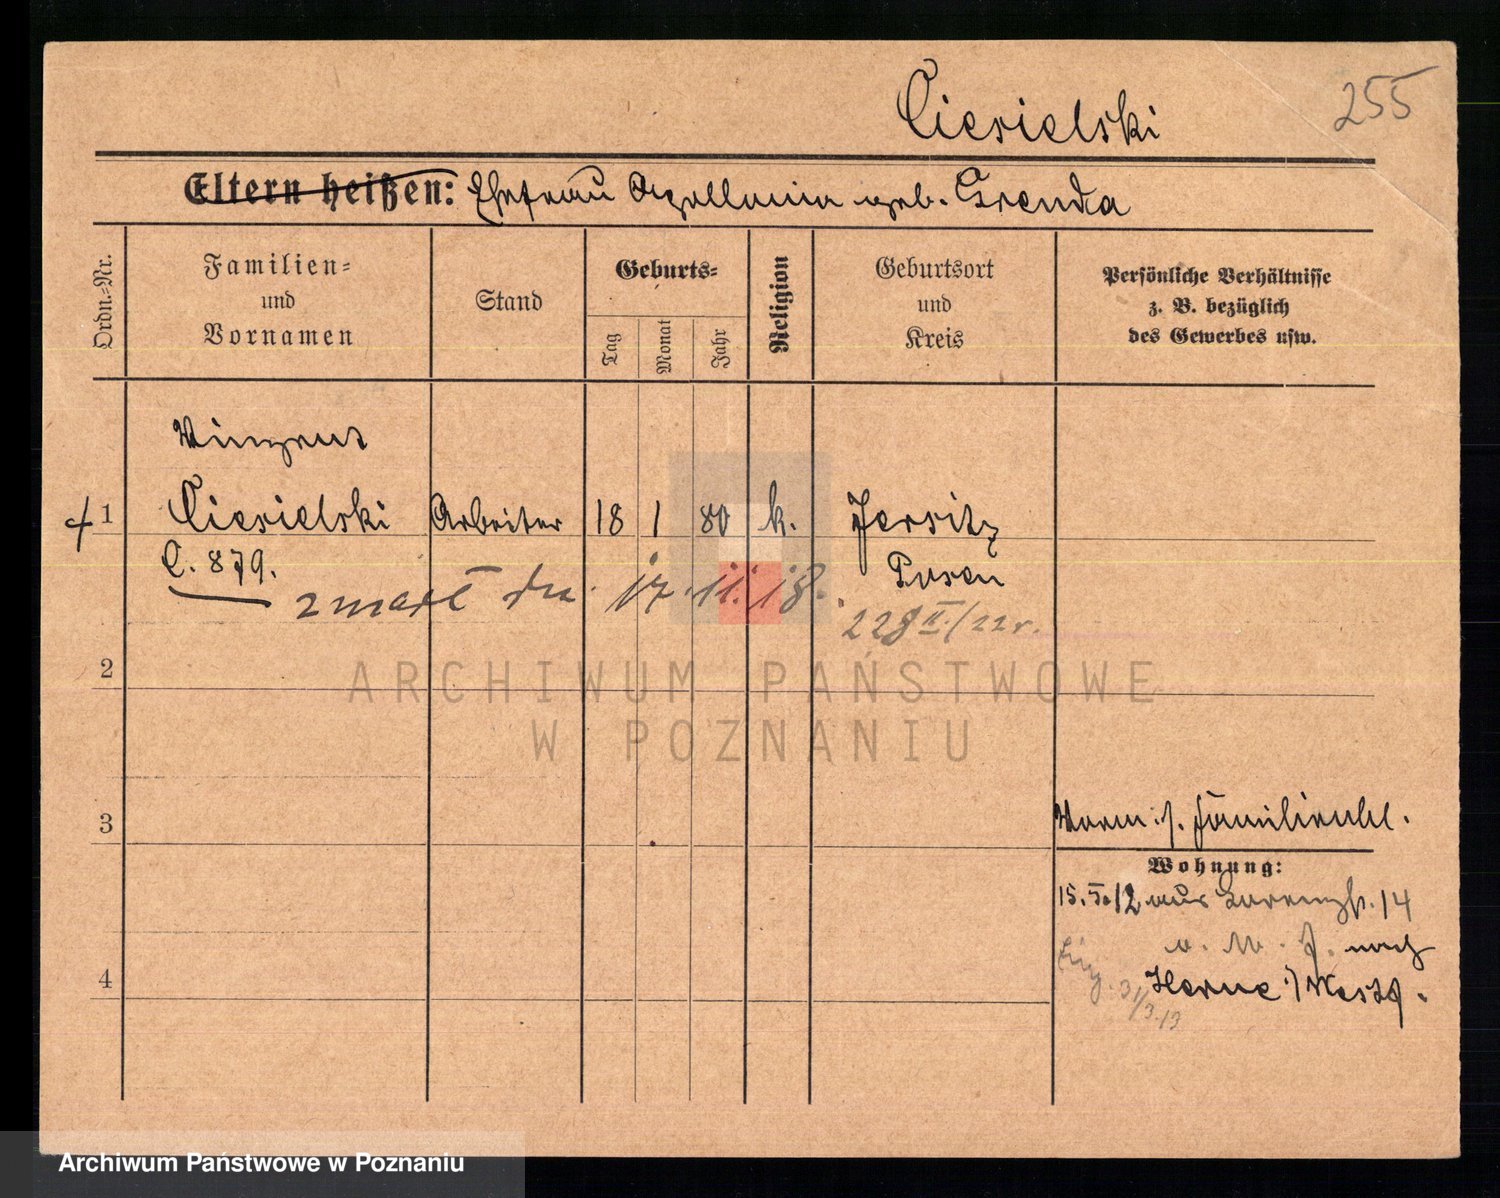 255
Ciesielski
Eltern heißen: Ehefrau Apollonia geb. Grenda
Ordn.-Nr.
Familien-
und
Vornamen
Stand
Geburts-
Tag
Monat
Jahr
Religion
Geburtsort
und
Kreis
Persönliche Verhältnisse
z. B. bezüglich
des Gewerbes usw.
Vinzent
1 Ciesielski Arbeiter 18 1 80 k. Jersitz
C. 879. Posen
zmarł dn. 17.11.18.
228 II/22 r.
2
ARCHIWUM PAŃSTWOWE
W POZNANIU
3
Verm. s. Familienbl.
Wohnung:
15. 5. 12 aus Lorenzstr. 14
nach
4
Herne i/Westf.
31/3.13
Archiwum Państwowe w Poznaniu